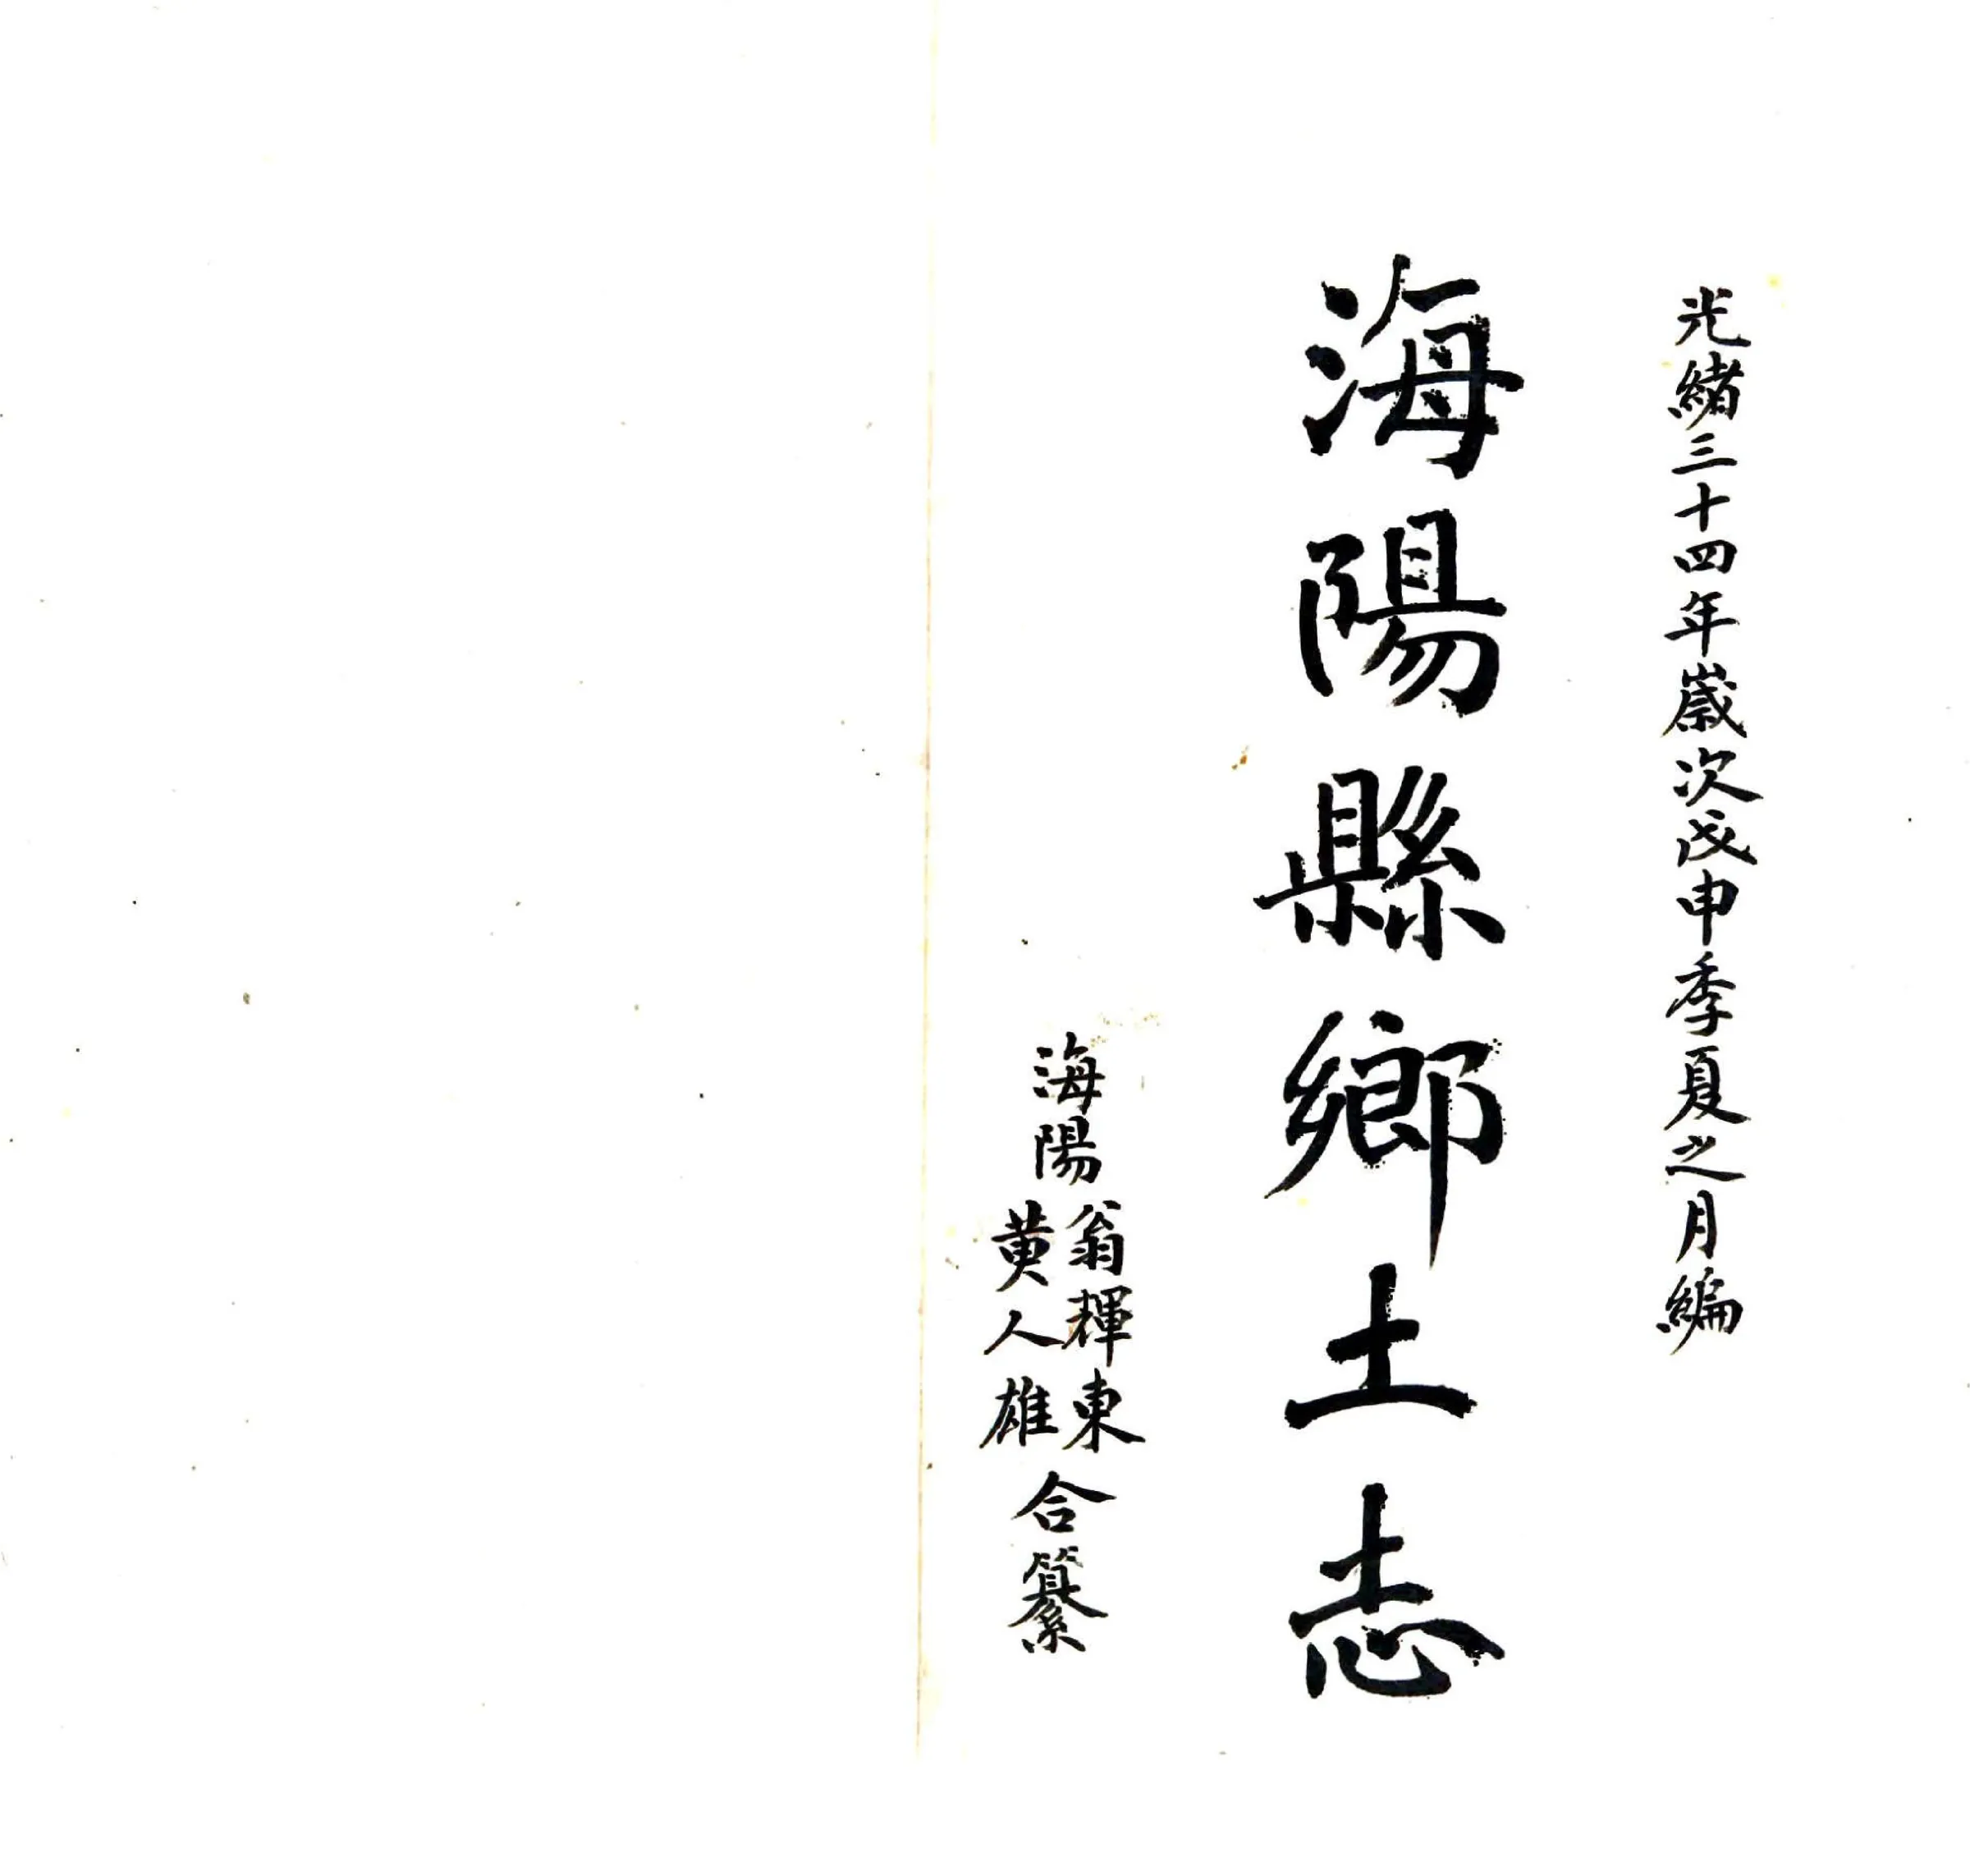 光緒三十四年歲次戊申季夏之月編
海陽縣鄉土志
海陽
翁輝東
黃人雄
合纂